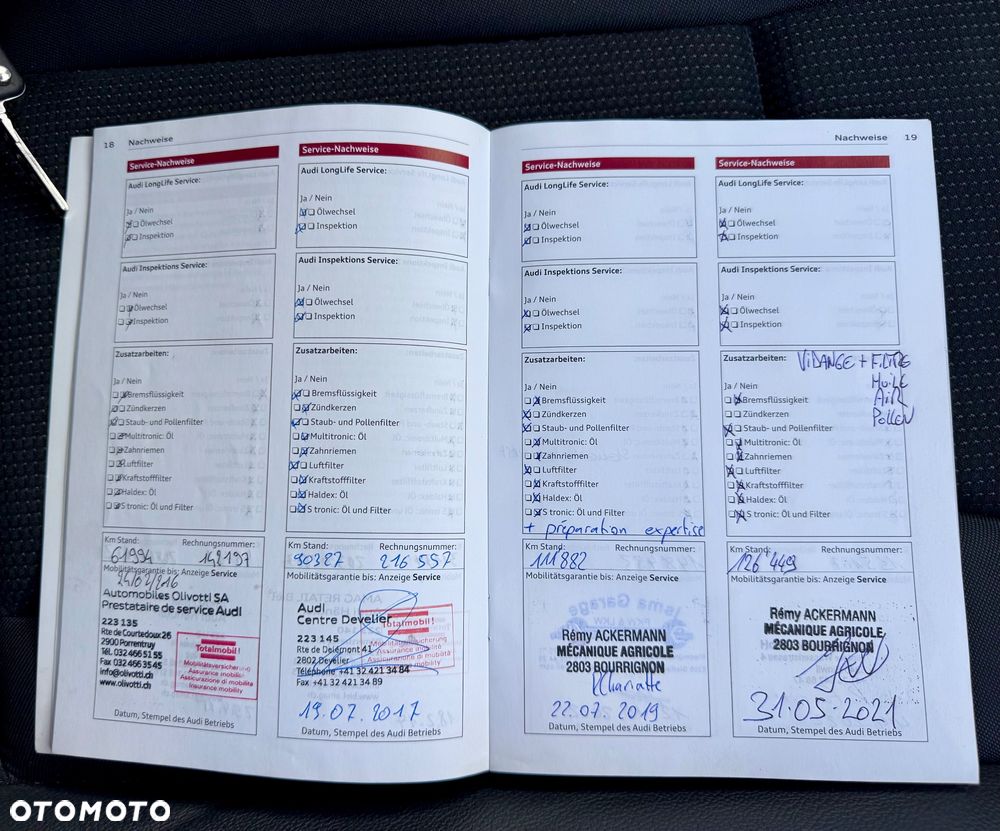 18 Nachweise
Service-Nachweise
Audi LongLife Service:
Ja / Nein
Ölwechsel
Inspektion
Audi Inspektions Service:
Ja / Nein
Ölwechsel
Inspektion
Zusatzarbeiten:
Ja / Nein
Bremsflüssigkeit
Zündkerzen
Staub- und Pollenfilter
Multitronic: Öl
Zahnriemen
Luftfilter
Kraftstofffilter
Haldex: Öl
S tronic: Öl und Filter
Km Stand: Rechnungsnummer:
61994 142197
Mobilitätsgarantie bis: Anzeige Service
Automobiles Olivotti SA
Prestataire de service Audi
223 135
Rte de Courtedoux 26
2900 Porrentruy
Tél. 032 466 51 55
Fax 032 466 35 45
info@olivotti.ch
www.olivotti.ch
Totalmobil!
Mobilitätsversicherung
Assurance mobilité
Assicurazione di mobilità
Insurance mobility
Datum, Stempel des Audi Betriebs
Service-Nachweise
Audi LongLife Service:
Ja / Nein
Ölwechsel
Inspektion
Audi Inspektions Service:
Ja / Nein
Ölwechsel
Inspektion
Zusatzarbeiten:
Ja / Nein
Bremsflüssigkeit
Zündkerzen
Staub- und Pollenfilter
Multitronic: Öl
Zahnriemen
Luftfilter
Kraftstofffilter
Haldex: Öl
S tronic: Öl und Filter
Km Stand: Rechnungsnummer:
90327 216557
Mobilitätsgarantie bis: Anzeige Service
Audi
Centre Develier
223 145
Rte de Delémont 41
2802 Develier
Téléphone +41 32 421 34 84
Fax +41 32 421 34 89
Totalmobil!
Mobilitätsversicherung
Assurance mobilité
Assicurazione di mobilità
Insurance mobility
19.07.2017
Datum, Stempel des Audi Betriebs
Nachweise 19
Service-Nachweise
Audi LongLife Service:
Ja / Nein
Ölwechsel
Inspektion
Audi Inspektions Service:
Ja / Nein
Ölwechsel
Inspektion
Zusatzarbeiten:
Ja / Nein
Bremsflüssigkeit
Zündkerzen
Staub- und Pollenfilter
Multitronic: Öl
Zahnriemen
Luftfilter
Kraftstofffilter
Haldex: Öl
S tronic: Öl und Filter
+ préparation expertise
Km Stand: Rechnungsnummer:
111882
Mobilitätsgarantie bis: Anzeige Service
Rémy ACKERMANN
MÉCANIQUE AGRICOLE
2803 BOURRIGNON
22.07.2019
Datum, Stempel des Audi Betriebs
Service-Nachweise
Audi LongLife Service:
Ja / Nein
Ölwechsel
Inspektion
Audi Inspektions Service:
Ja / Nein
Ölwechsel
Inspektion
Zusatzarbeiten:
VIDANGE + FILTRE
HUILE
AIR
POLLEN
Ja / Nein
Bremsflüssigkeit
Zündkerzen
Staub- und Pollenfilter
Multitronic: Öl
Zahnriemen
Luftfilter
Kraftstofffilter
Haldex: Öl
S tronic: Öl und Filter
Km Stand: Rechnungsnummer:
126'449
Mobilitätsgarantie bis: Anzeige Service
Rémy ACKERMANN
MÉCANIQUE AGRICOLE
2803 BOURRIGNON
31.05.2021
Datum, Stempel des Audi Betriebs
OTOMOTO